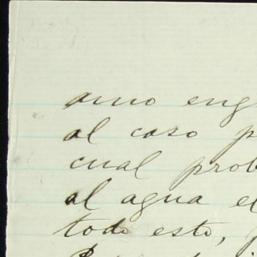 amo eng
al caso p
cual prob
al agua el
todo esto,